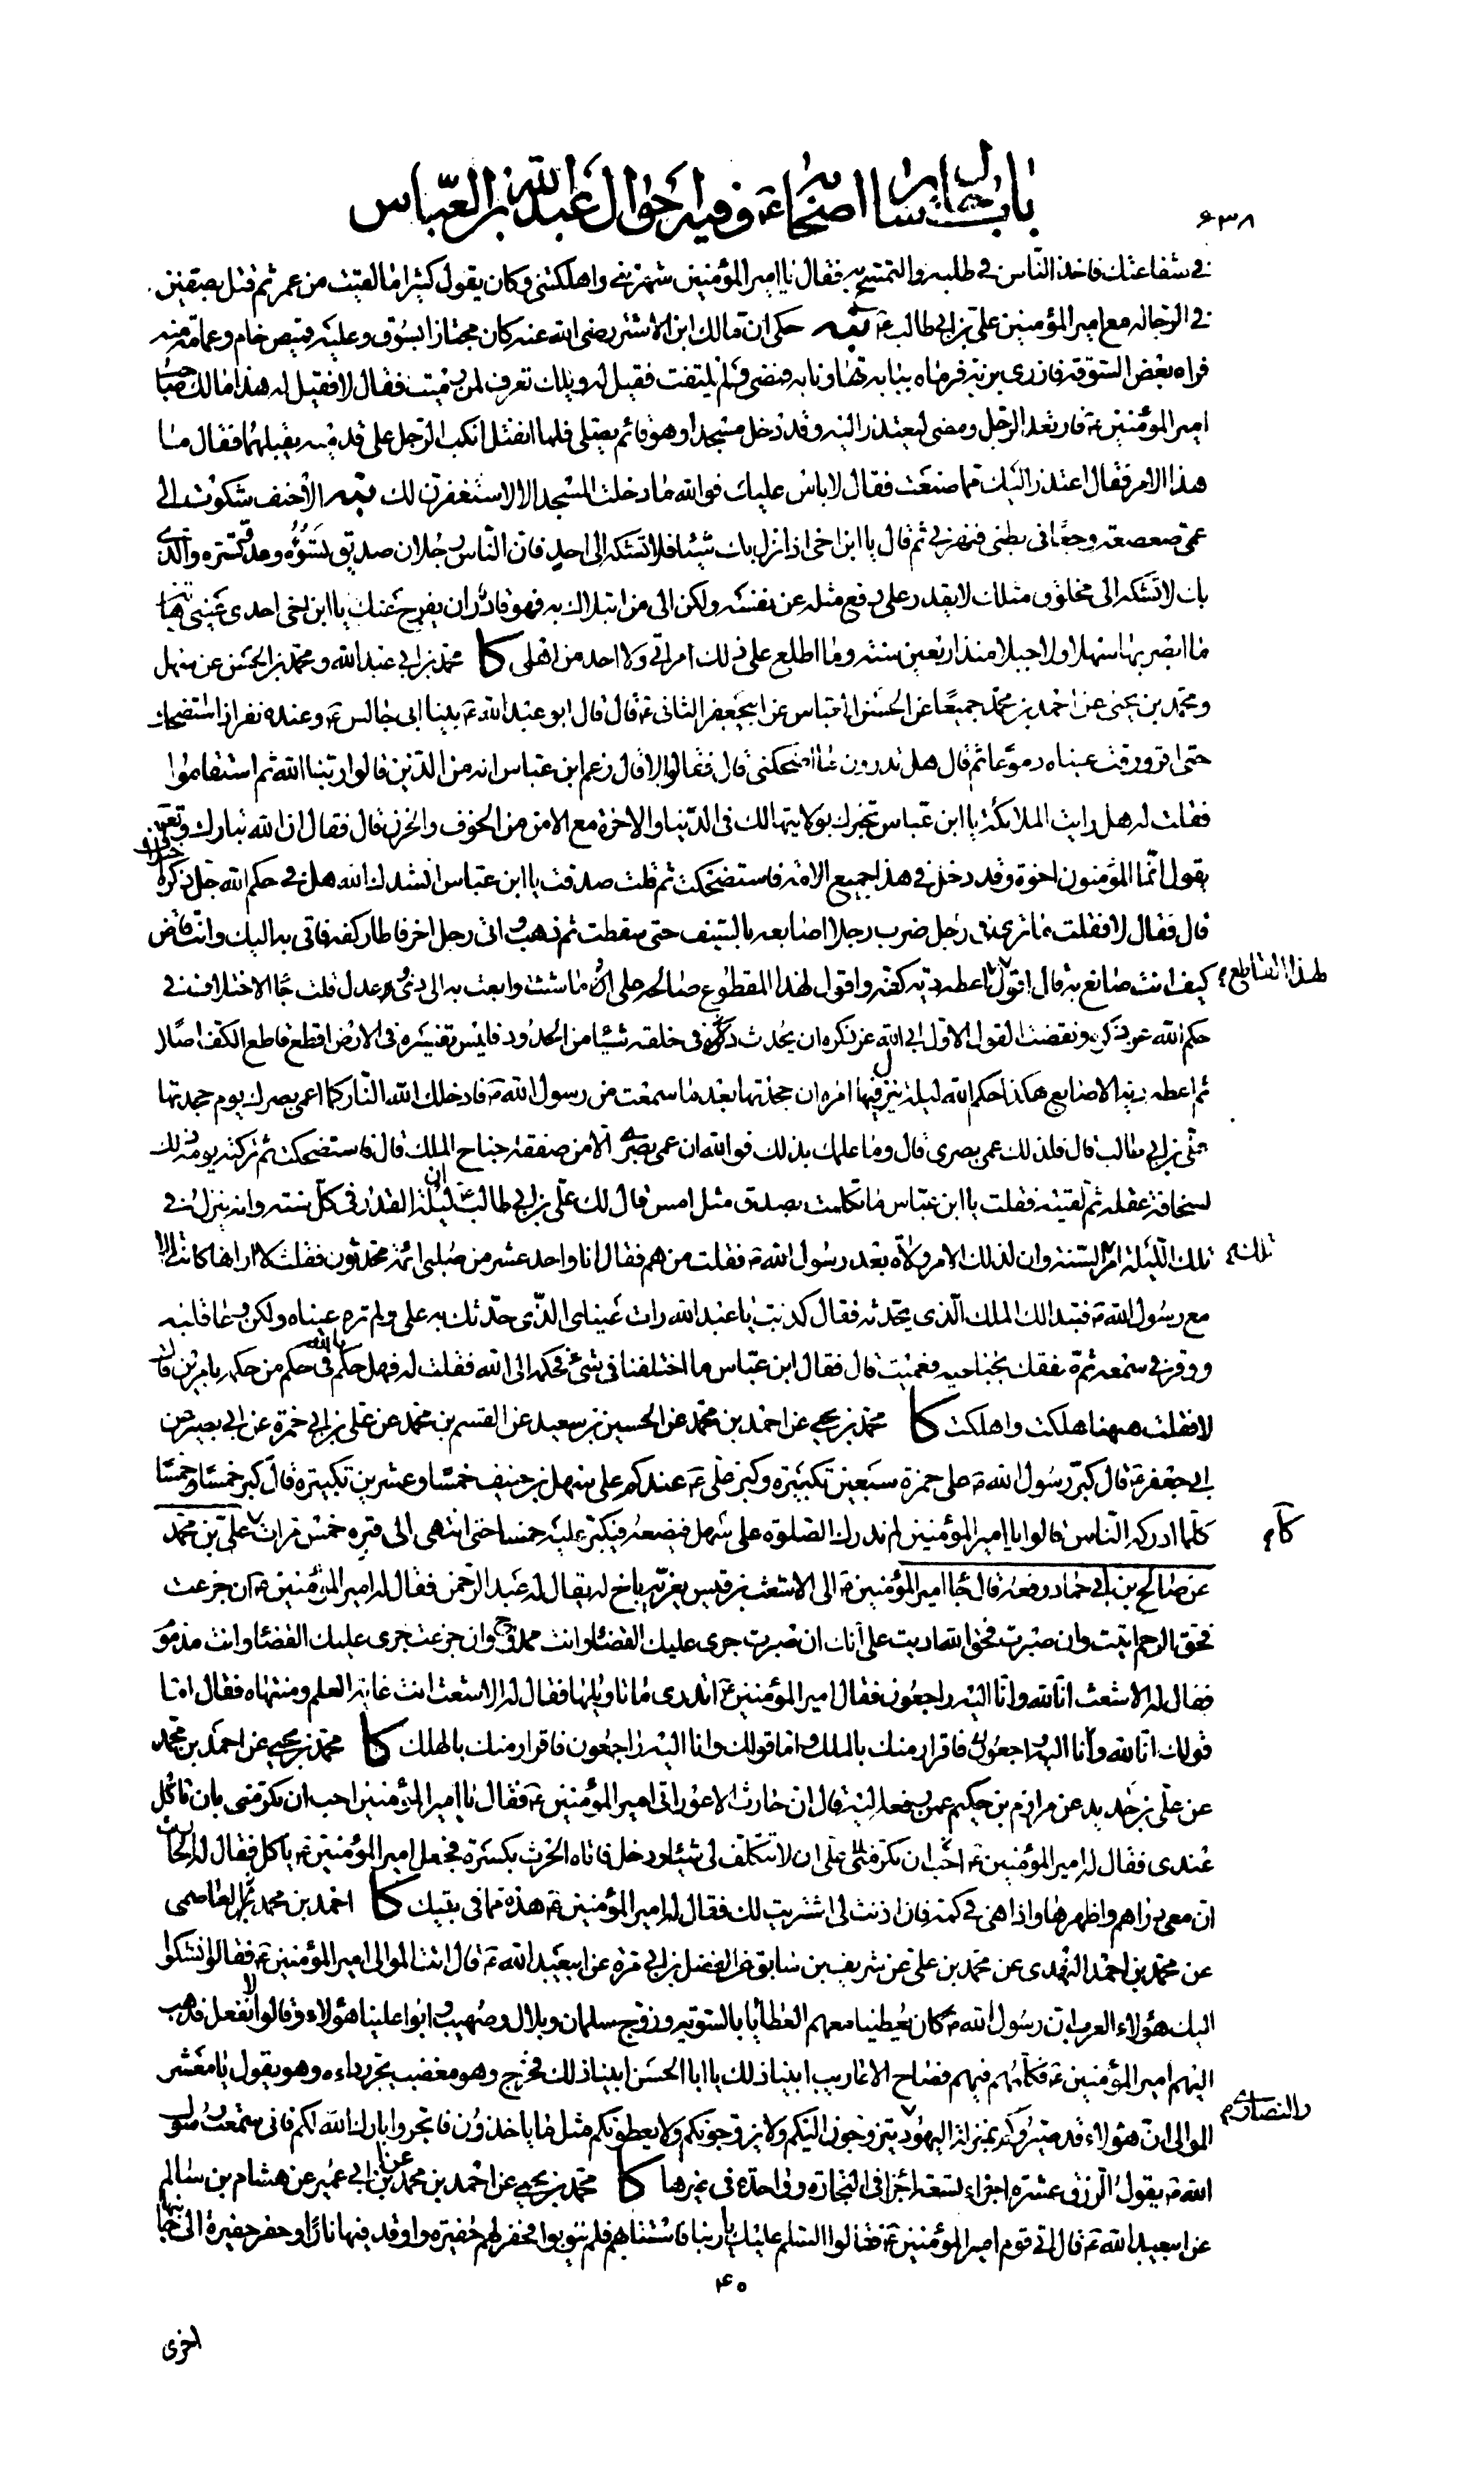 باب احوال سائر اصحابه ع وفيه احوال عبد الله بن العباس
۶۳۸
في شفاعتك فاخذ الناس في طلبه والتمسح به فقال يا امير المؤمنين شهرتني واهلكتني وكان يقول كثيرا ما لقيت من عمر ثم قتل بصفين
في الرجاله مع امير المؤمنين علي بن ابي طالب ع نبه حكى ان مالك ابن الاشتر رضى الله عنه كان مجتازا بسوق وعليه قميص خام وعمامة منه
فراه بعض السوقة فازرى بزيه فرماه ببنابه تهاونا به فمضى ولم يلتفت فقيل له ويلك تعرف لمن رميت فقال لا فقيل له هذا مالك صاحب
امير المؤمنين ع فارتعد الرجل ومضى ليعتذر اليه وقد دخل مسجدا وهو قائم يصلى فلما انفتل انكب الرجل على قدميه يقبلهما فقال ما
هذا الامر فقال اعتذر اليك مما صنعت فقال لا باس عليك فوالله ما دخلت المسجد الا لاستغفرن لك نبه الأحنف شكوت الى
عمى صعصعة وجعا فى بطنى فنهرني ثم قال يا ابن اخى اذا نزل بك شئ فلا تشكه الى احد فان الناس رجلان صديق تسوؤه وعدو تسره والذى
بك لا تشكه الى مخلوق مثلك لا يقدر على دفع مثله عن نفسه ولكن الى من ابتلاك به فهو قادر ان يفرج عنك يا ابن اخى احدى عينى هاتين
ما ابصر بها سهلا ولا جبلا منذ اربعين سنة وما اطلع على ذلك امراتي ولا احد من اهلى كا محمد بن ابي عبد الله ومحمد بن الحسن عن سهل
ومحمد بن يحيى عن احمد بن محمد جميعا عن الحسن العباس عن ابيجعفر الثانى ع قال قال ابو عبد الله ع بينا ابى جالس ع وعنده نفر اذا استضحك
حتى اغرورقت عيناه دموعا ثم قال هل تدرون ما اضحكنى قال فقالوا لا قال زعم ابن عباس انه من الذين قالوا ربنا الله ثم استقاموا
فقلت له هل رايت الملائكة يا ابن عباس تخبرك بولايتها لك فى الدنيا والاخرة مع الامن من الخوف والحزن قال فقال ان الله تبارك وتعالى
يقول انما المؤمنون اخوة وقد دخل في هذا جميع الامة فاستضحكت ثم قلت صدقت يا ابن عباس انشدك الله هل في حكم الله جل ذكره
قال فقال لا فقلت ما ترى في رجل ضرب رجلا اصابعه بالسيف حتى سقطت ثم ذهب واتى رجل اخر فاطار كفه فاتى به اليك وانت قاض
كيف انت صانع به قال اقول اعطه دية كفه واقول لهذا المقطوع صالحه على ما شئت وابعث به الى ذوى عدل قلت جاء الاختلاف في
لهذا القاطع م
حكم الله عز ذكره ونقضت القول الاول ابى الله عز ذكره ان يحدث في خلقه شيئا من الحدود فليس تفسيره فى الارض اقطع قاطع الكف اصلا
ثم اعطه دية الاصابع هكذا حكم الله ليلة ينزل فيها امره ان جحدتها بعد ما سمعت من رسول الله ص فادخلك الله النار كما اعمى بصرك يوم جحدتها
على بن ابي طالب قال فلذلك عمى بصرى قال وما علمك بذلك فوالله ان عمى بصره الا من صفقة جناح الملك قال فاستضحكت ثم تركته يومه ذلك
لسخافة عقله ثم لقيته فقلت يا ابن عباس ما تكلمت بصدق مثل امس قال لك على بن ابي طالب ع ان ليلة القدر فى كل سنة وانه ينزل في
تلك الليلة امر السنة وان لذلك الامر ولاة بعد رسول الله ص فقلت من هم فقال انا واحد عشر من صلبى ائمة محدثون فقلت لا اراها كانت الا
تلك م
مع رسول الله ص فتبدا لك الملك الذى يحدثه فقال كذبت يا عبد الله رات عيناى الذى حدثك به على ولم تره عيناه ولكن وعا قلبه
ووقر في سمعه ثم صفقك بجناحيه فعميت قال فقال ابن عباس ما اختلفنا فى شئ فحكمه الى الله فقلت له فهل حكم الله فى حكم من حكمه بامرين قال
لا فقلت ههنا هلكت واهلكت كا محمد بن يحيى عن احمد بن محمد عن الحسين بن سعيد عن القسم بن محمد عن على بن ابي حمزة عن ابي بصير عن
ابي جعفر ع قال كبر رسول الله ص على حمزة سبعين تكبيرة وكبر على ع عندكم على سهل بن حنيف خمسا وعشرين تكبيرة قال كبر خمسا وخمسا
كلما ادركه الناس قالوا يا امير المؤمنين لم ندرك الصلوة على سهل فيضعه فيكبر عليه خمسا حتى انتهى الى قبره خمس مرات على بن محمد
كا م
عن صالح بن ابي حماد رفعه قال جاء امير المؤمنين ع الى الاشعث بن قيس يعزيه باخ له يقال له عبد الرحمن فقال له امير المؤمنين ع ان جزعت
فحق الرحم اتيت وان صبرت فحق الله اديت على أنك ان صبرت جرى عليك القضاء وانت محمود وان جزعت جرى عليك القضاء وانت مذموم
فقال له الاشعث انا لله وانا اليه راجعون فقال امير المؤمنين ع اتدرى ما تاويلها فقال له الاشعث انت غاية العلم ومنتهاه فقال اما
قولك انا لله فاقرار منك بالملك واما قولك وانا اليه راجعون فاقرار منك بالهلك كا محمد بن يحيى عن احمد بن محمد
عن على بن حديد عن مرازم بن حكيم عمن رفعه اليه قال ان حارث الاعور اتى امير المؤمنين ع فقال يا امير المؤمنين احب ان تكرمنى بان تاكل
عندى فقال له امير المؤمنين ع على ان لا تتكلف لى شيئا ودخل فاتاه الحرث بكسرة فجعل امير المؤمنين ع ياكل فقال له الحارث
ان معى دراهم واظهرها واذا هى في كمه فان اذنت لى اشتريت لك فقال له امير المؤمنين ع هذه مما فى بيتك كا احمد بن محمد العاصمى
عن محمد بن احمد النهدى عن محمد بن على عن شريف بن سابق عن الفضل بن ابي قرة عن ابيعبد الله ع قال اتت الموالى امير المؤمنين ع فقالوا نشكوا
اليك هؤلاء العرب ان رسول الله ص كان يعطينا معهم العطايا بالسوية وزوج سلمان وبلال وصهيب وابوا علينا هؤلاء وقالوا لا نفعل فذهب
اليهم امير المؤمنين ع فكلمهم فيهم فصاح الاعاريب ابينا ذلك يا ابا الحسن ابينا ذلك فخرج وهو مغضب يجر رداءه وهو يقول يا معشر
الموالى ان هؤلاء قد صيروكم بمنزلة اليهود يتزوجون اليكم ولا يزوجونكم ولا يعطونكم مثل ما ياخذون فاتجروا بارك الله لكم فانى سمعت رسول
والنصارى م
الله ص يقول الرزق عشرة اجزاء تسعة اجزا فى التجارة وواحدة فى غيرها كا محمد بن يحيى عن احمد بن محمد عن ابن ابي عمير عن هشام بن سالم
عن ابيعبد الله ع قال اتى قوم امير المؤمنين ع فقالوا السلم عليك يا ربنا فاستتابهم فلم يتوبوا فحفر لهم حفيرة واوقد فيها نارا وحفر حفيرة الى جانبها
۴۰
اخرى